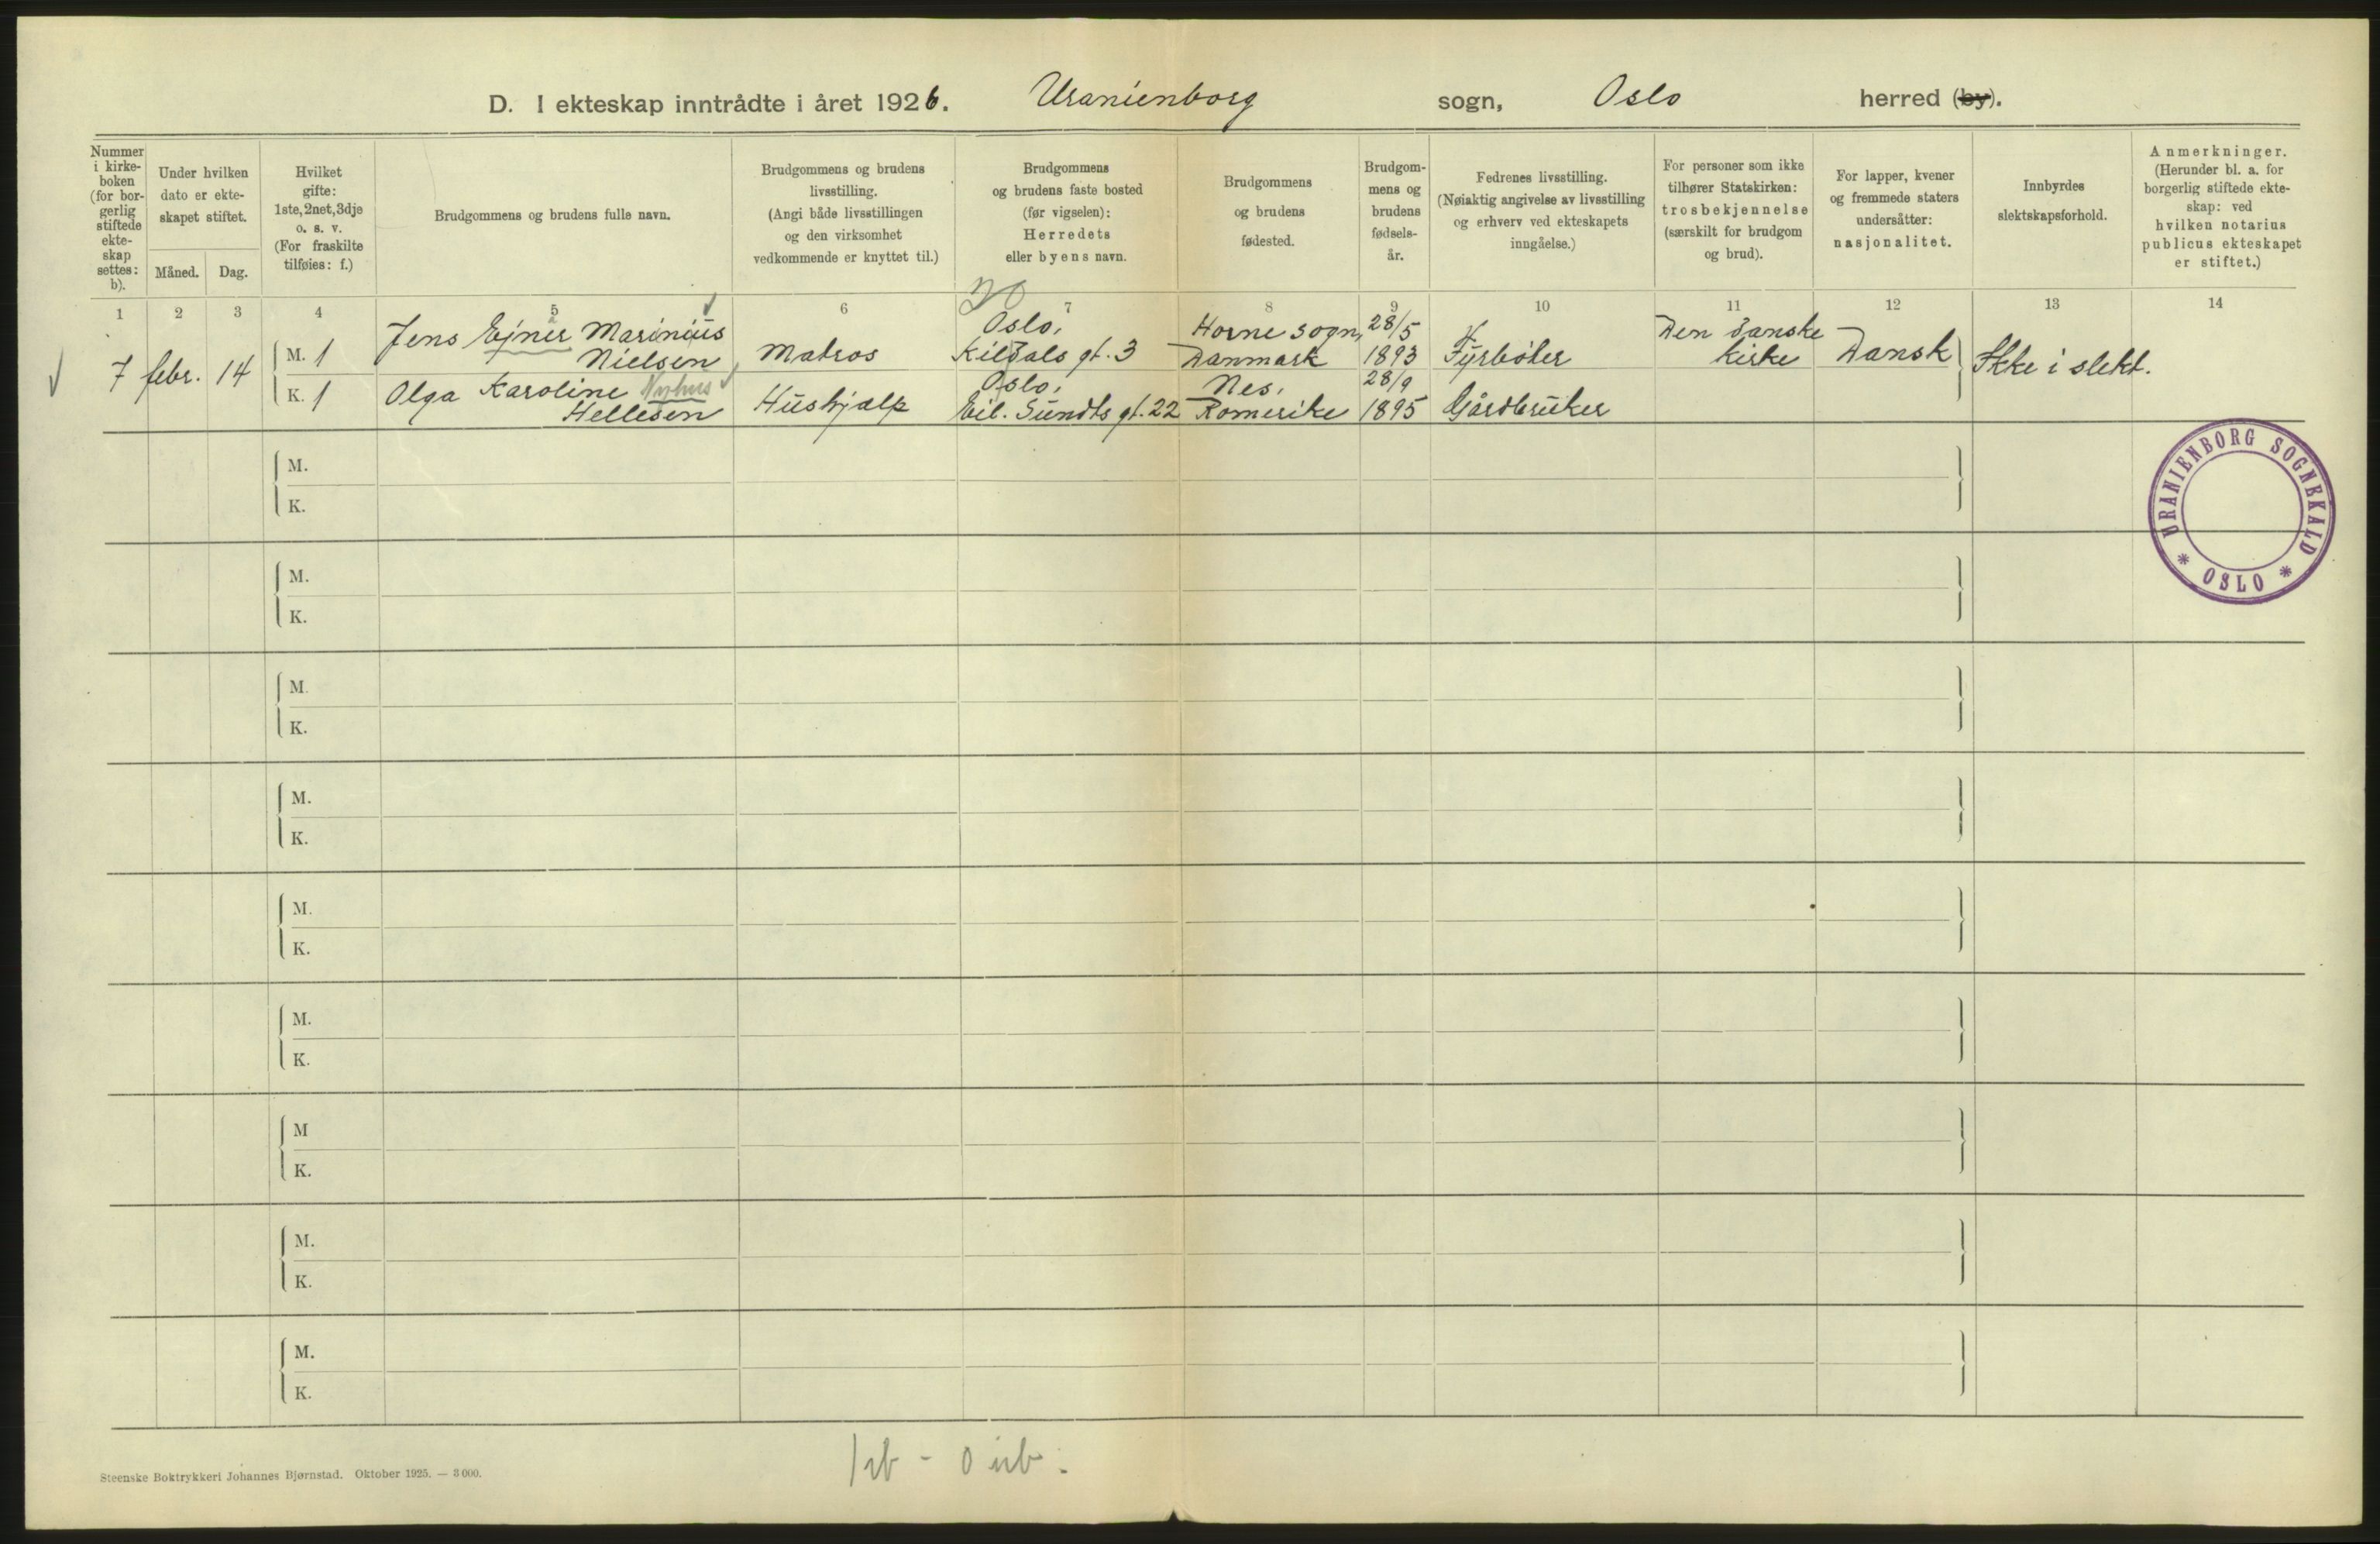 D. I ekteskap inntrådte i året 1926. Uranienborg sogn, Oslo herred (by).
Nummer
i kirke-
boken
(for bor-
gerlig
stiftede
ekte-
skap
settes:
b).
Under hvilken
dato er ekte-
skapet stiftet.
Måned. Dag.
Hvilket
gifte:
1ste, 2net, 3dje
o. s. v.
(For fraskilte
tilføies: f.)
Brudgommens og brudens fulle navn.
Brudgommens og brudens
livsstilling.
(Angi både livsstillingen
og den virksomhet
vedkommende er knyttet til.)
Brudgommens
og brudens faste bosted
(før vigselen):
Herredets
eller byens navn.
Brudgommens
og brudens
fødested.
Brudgom-
mens og
brudens
fødsels-
år.
Fedrenes livsstilling.
(Nøiaktig angivelse av livsstilling
og erhverv ved ekteskapets
inngåelse.)
For personer som ikke
tilhører Statskirken:
trosbekjennelse
(særskilt for brudgom
og brud).
For lapper, kvener
og fremmede staters
undersåtter:
nasjonalitet.
Innbyrdes
slektskapsforhold.
Anmerkninger.
(Herunder bl. a. for
borgerlig stiftede ekte-
skap: ved
hvilken notarius
publicus ekteskapet
er stiftet.)
1 2 3 4 5 6 7 8 9 10 11 12 13 14
7 febr. 14
M. 1
Jens Ejner Marinius
Nielsen
Matros
Oslo,
Kildals gt. 3
Horne sogn,
Danmark
28/5
1893
Fyrbøter
Den danske
kirke
Dansk
Ikke i slekt.
K. 1
Olga Karoline Nyhus
Hellesen
Hushjælp
Oslo,
Eil. Sundts gt. 22
Nes,
Romerike
28/9
1895
Gårdbruker
M.
K.
M.
K.
M.
K.
M.
K.
M.
K.
M.
K.
M
K.
M.
K.
M.
K.
URANIENBORG SOGNEKALD
* OSLO *
Steenske Boktrykkeri Johannes Bjørnstad. Oktober 1925. — 3000.